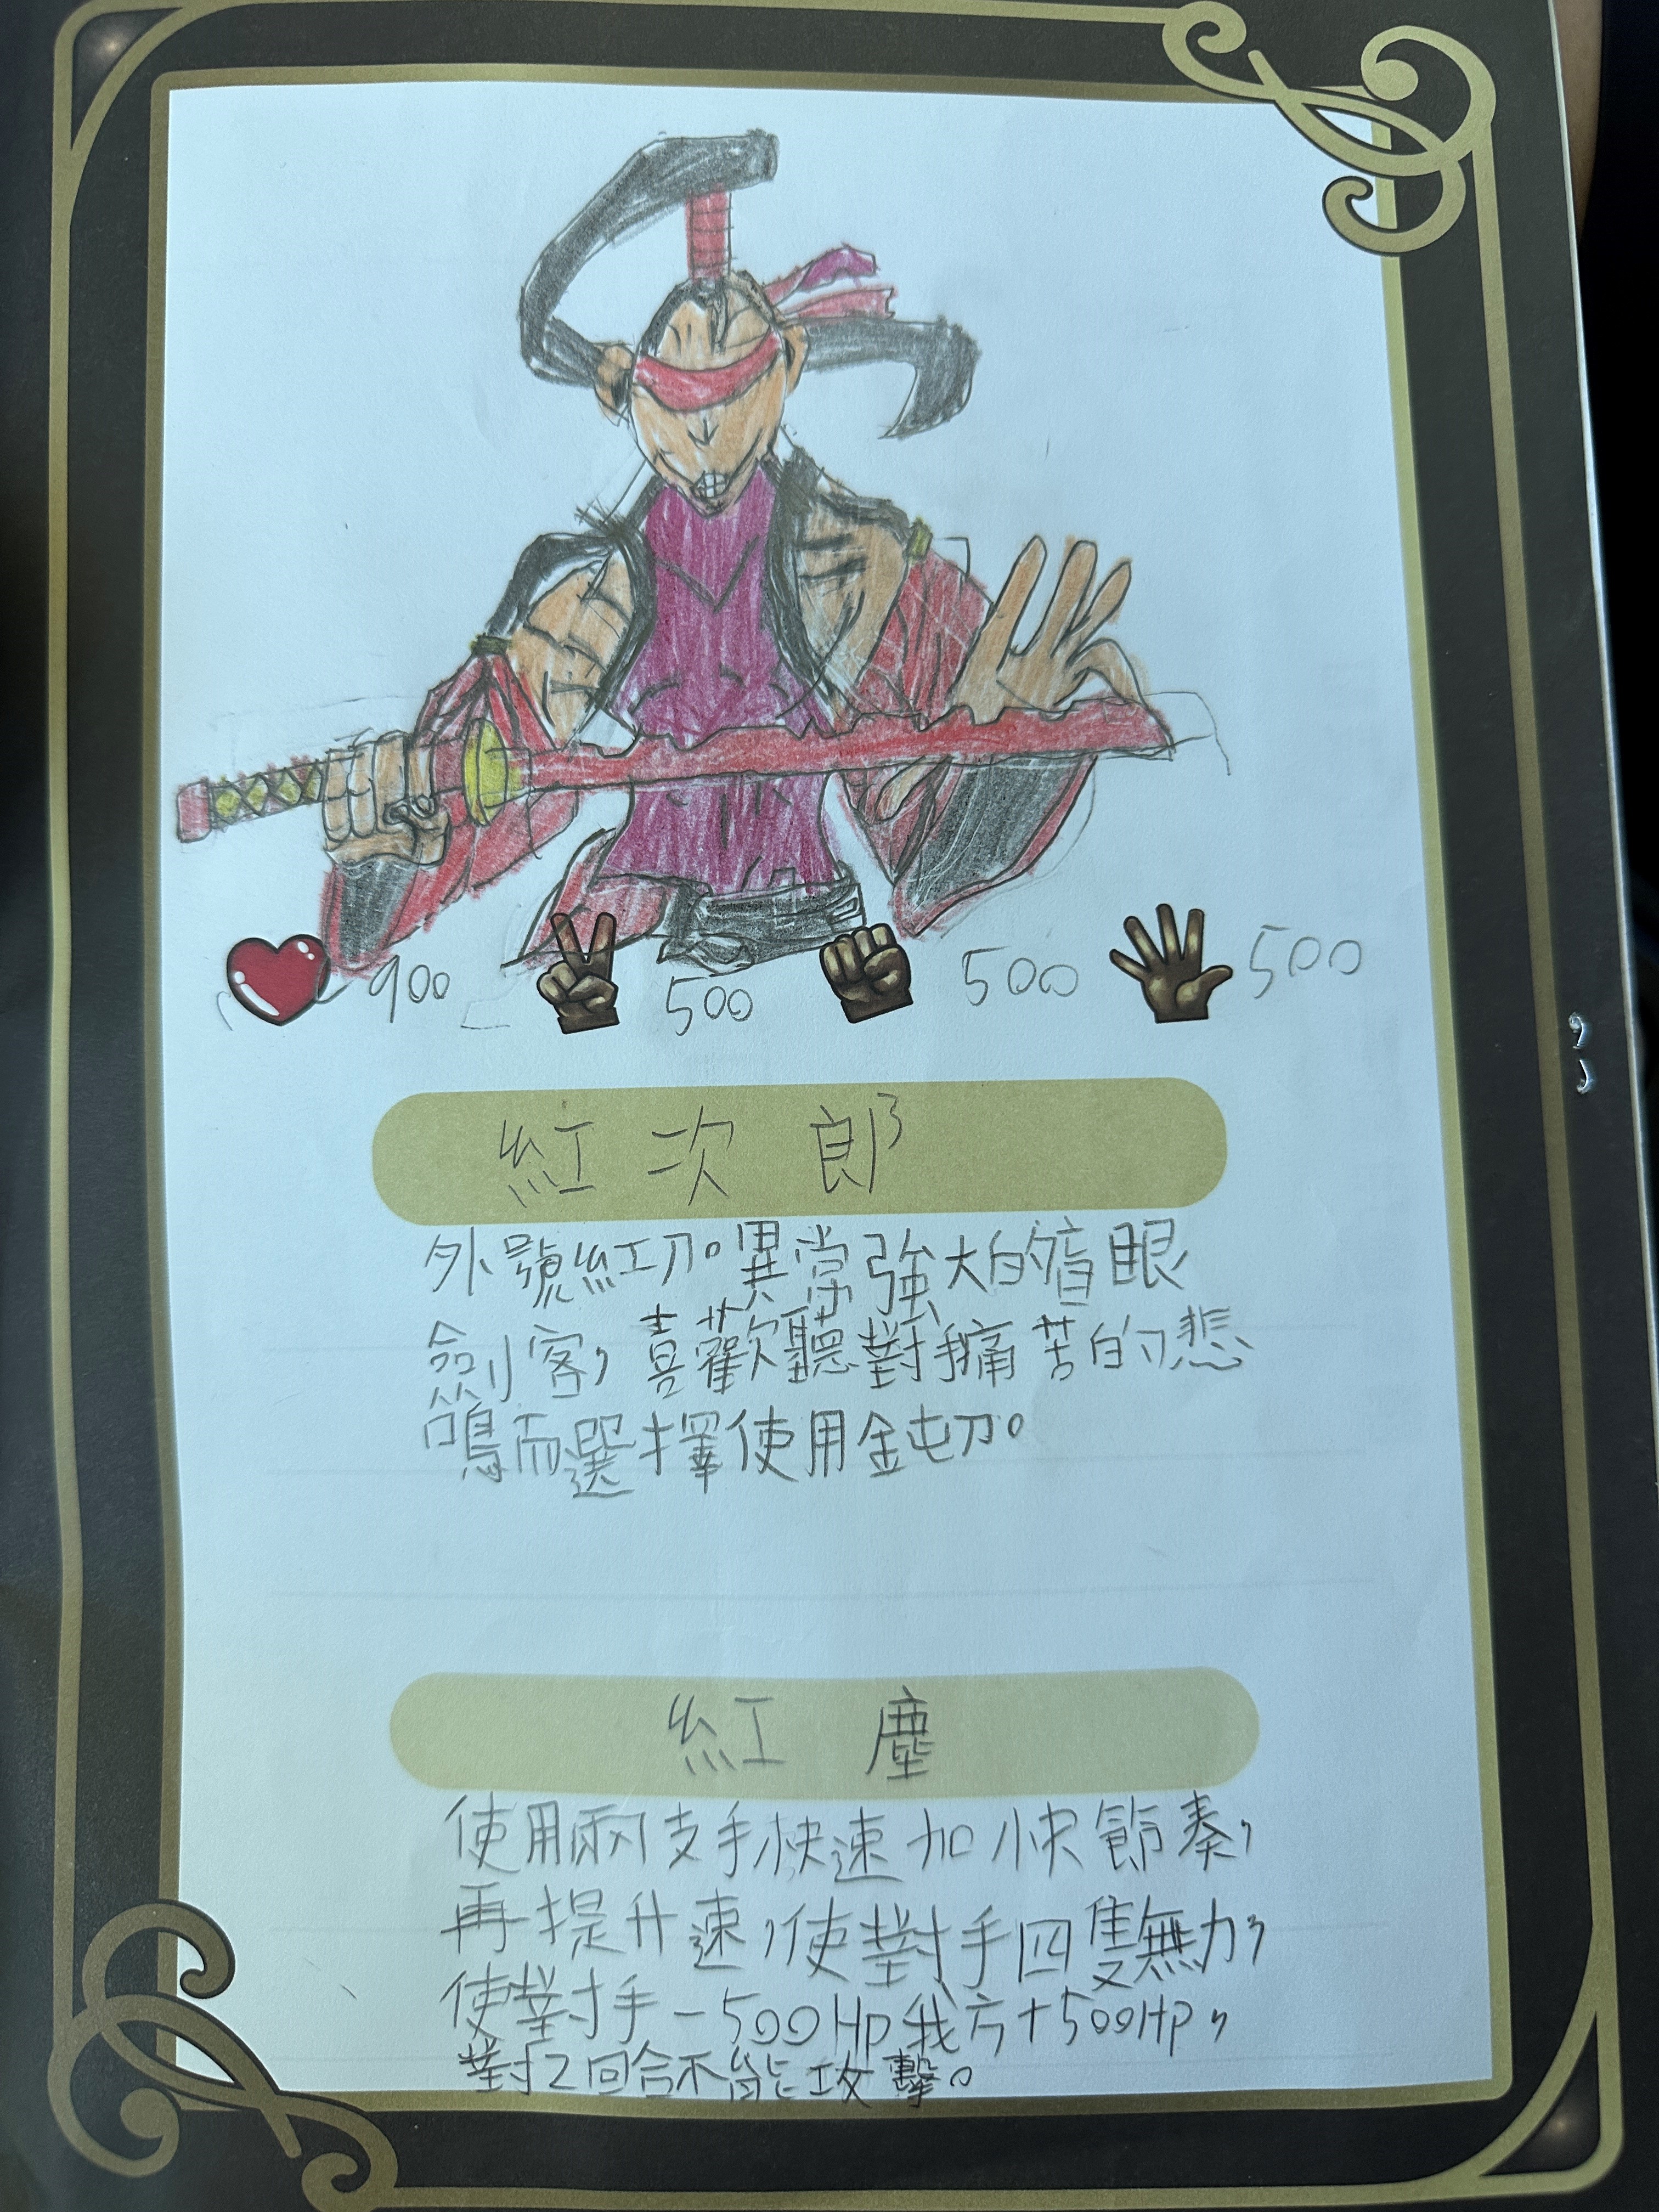 900 500 500 500
紅次郎
外號紅刀。異常強大的盲眼
劍客，喜歡聽對手痛苦的悲
鳴而選擇使用鈍刀。
紅塵
使用兩支手快速加快節奏，
再提升速，使對手四隻無力，
使對手-500Hp我方+500Hp，
對2回合不能攻擊。